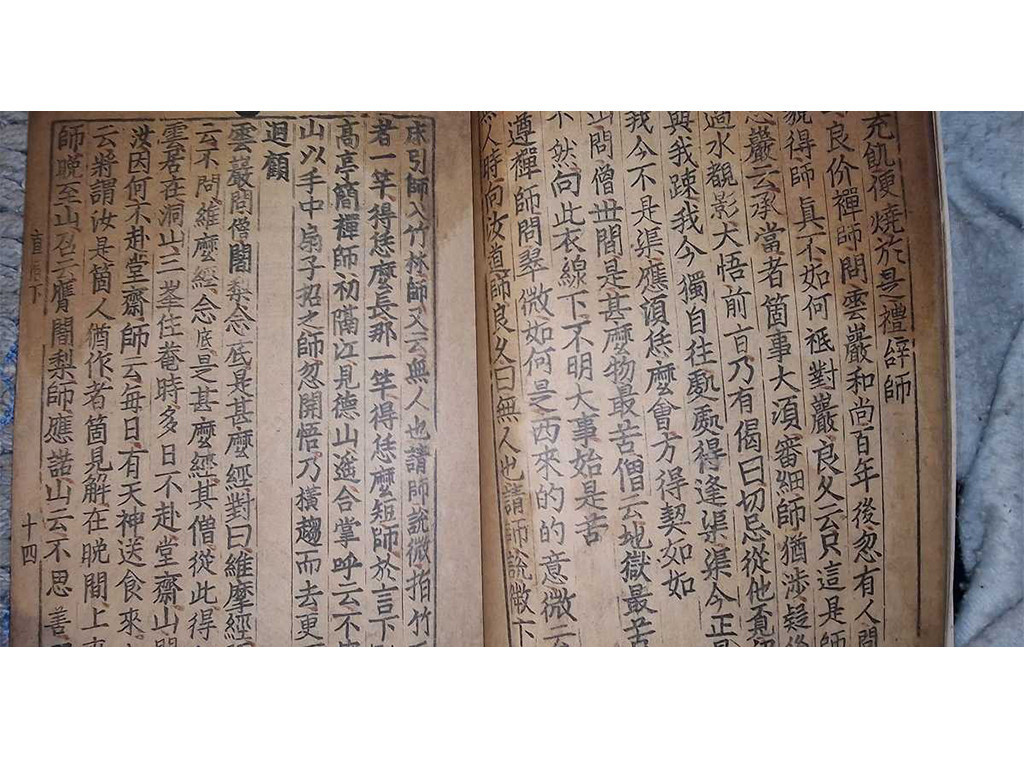 充飢便燒於是禮辭師
良价禪師問雲巖和尚百年後忽有人問
貌得師真不如何祗對巖良久云只這是師
巖云承當者箇事大湏審細師猶涉疑後
過水覩影大悟前㫖乃有偈曰切忌從他覓
與我踈我今獨自往處處得逢渠渠今正是
我今不是渠應湏恁麽會方得契如如
山問僧世間是甚麽物最苦僧云地獄最苦
不然向此衣線下不明大事始是苦
遵禪師問翠微如何是西來的的意微云
無人時向汝道師良久曰無人也請師說微下
床引師入竹林師又云無人也請師說微指竹
者一竿得恁麽長那一竿得恁麽短師於言下
高亭簡禪師初隔江見德山遙合掌呼云不
山以手中扇子招之師忽開悟乃橫趨而去更
迴顧
雲巖問僧闍梨念底是甚麽經對曰維摩經
云不問維麽經念底是甚麽經其僧從此得
雲居在洞山三峯住菴時多日不赴堂齋山問
汝因何不赴堂齋師云每日有天神送食來
云將謂汝是箇人猶作者箇見解在晩間上來
師晩至山召云膺闍梨師應諾山云不思善
直指下
十四